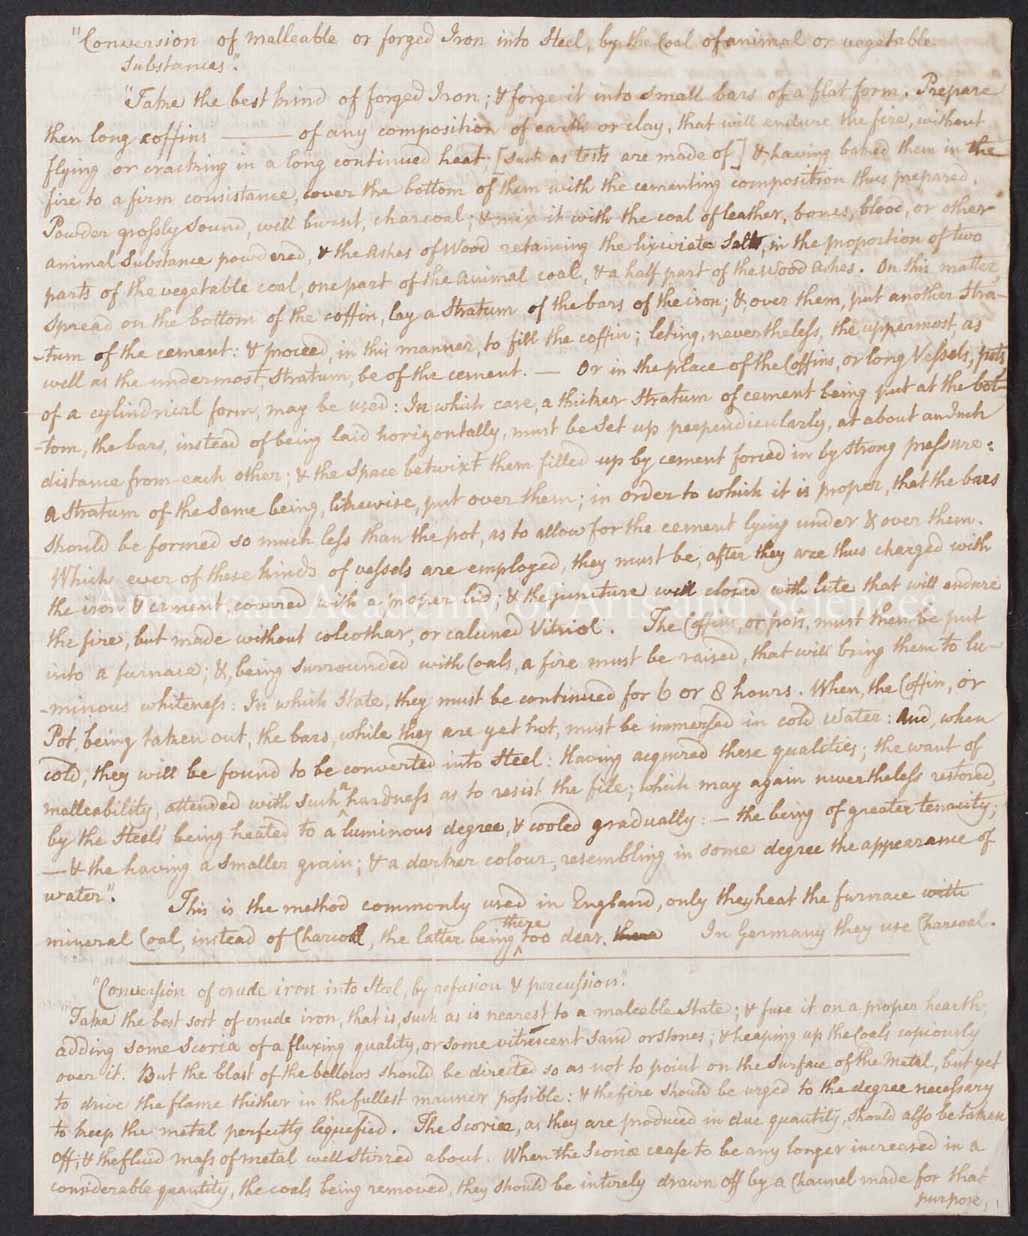 "Conversion of malleable or forged Iron into Steel, by the Coal of animal or vegetable
Substances".
"Take the best kind of forged Iron; & forge it into small bars of a flat form. Prepare
then long coffins ——— of any composition of earth or clay, that will endure the fire, without
flying or cracking in a long continued heat, [such as tests are made of] & having baked them in the
fire to a firm consistance, cover the bottom of them with the cementing composition thus prepared.
Powder grossly sound, well burnt, charcoal; & mix it with the coal of leather, bones, blood, or other
animal Substance powdered, & the Ashes of Wood retaining the lixiviate Salts, in the proportion of two
parts of the vegetable coal, one part of the animal coal, & a half part of the Wood Ashes. On this matter,
spread on the bottom of the coffin, lay a Stratum of the bars of the iron; & over them, put another Stra-
-tum of the cement: & proceed, in this manner, to fill the coffin; leting, nevertheless, the uppermost as
well as the undermost, Stratum, be of the cement. — Or in the place of the Coffins, or long Vessels, pots
of a cylindrical form, may be used: In which case, a thicker Stratum of cement being put at the bot-
-tom, the bars, instead of being laid horizontally, must be set up perpendicularly, at about an Inch
distance from each other; & the space betwixt them filled up by cement forced in by strong pressure:
a Stratum of the same being, likewise, put over them; in order to which it is proper, that the bars
should be formed so much less than the pot, as to allow for the cement lying under & over them.
Which ever of these kinds of vessels are employed, they must be, after they are thus charged with
the iron & cement, covered with a proper lid; & the juncture well closed with lute that will endure
the fire, but made without colcothar, or calcined Vitriol. The Coffins, or pots, must then be put
into a furnace; &, being surrounded with Coals, a fire must be raised, that will bring them to lu-
-minous whiteness: In which State, they must be continued for 6 or 8 hours. When, the Coffin, or
Pot, being taken out, the bars, while they are yet hot, must be immersed in cold Water: And, when
cold, they will be found to be converted into Steel: Having acquired these qualities; the want of
malleability, attended with such a hardness as to resist the file; which may again nevertheless restored,
by the Steel's being heated to a luminous degree, & cooled gradually: — the being of greater tenacity;
— & the having a smaller grain; & a darker colour, resembling in some degree the appearance of
water".
This is the method commonly used in England, only they heat the furnace with
mineral Coal, instead of Charcoal, the latter being there too dear. there In Germany they use Charcoal.
"Conversion of crude iron into Steel, by refusion & percussion".
"Take the best sort of crude iron, that is, such as is nearest to a maleable State; & fuse it on a proper hearth,
adding some Scoria of a fluxing quality, or some vitrescent sand or stones; & heaping up the Coals copiously
over it. But the blast of the bellows should be directed so as not to point on the Surface of the Metal, but yet
to drive the flame thither in the fullest manner possible: & the fire should be urged to the degree necessary
to keep the metal perfectly liquefied. The Scoriæ, as they are produced in due quantity, should also be taken
off; & the fluid mass of metal well stirred about. When the Scoriæ cease to be any longer increased in a
considerable quantity, the coals being removed, they should be intirely drawn off by a Channel made for that
purpose,
American Academy of Arts and Sciences